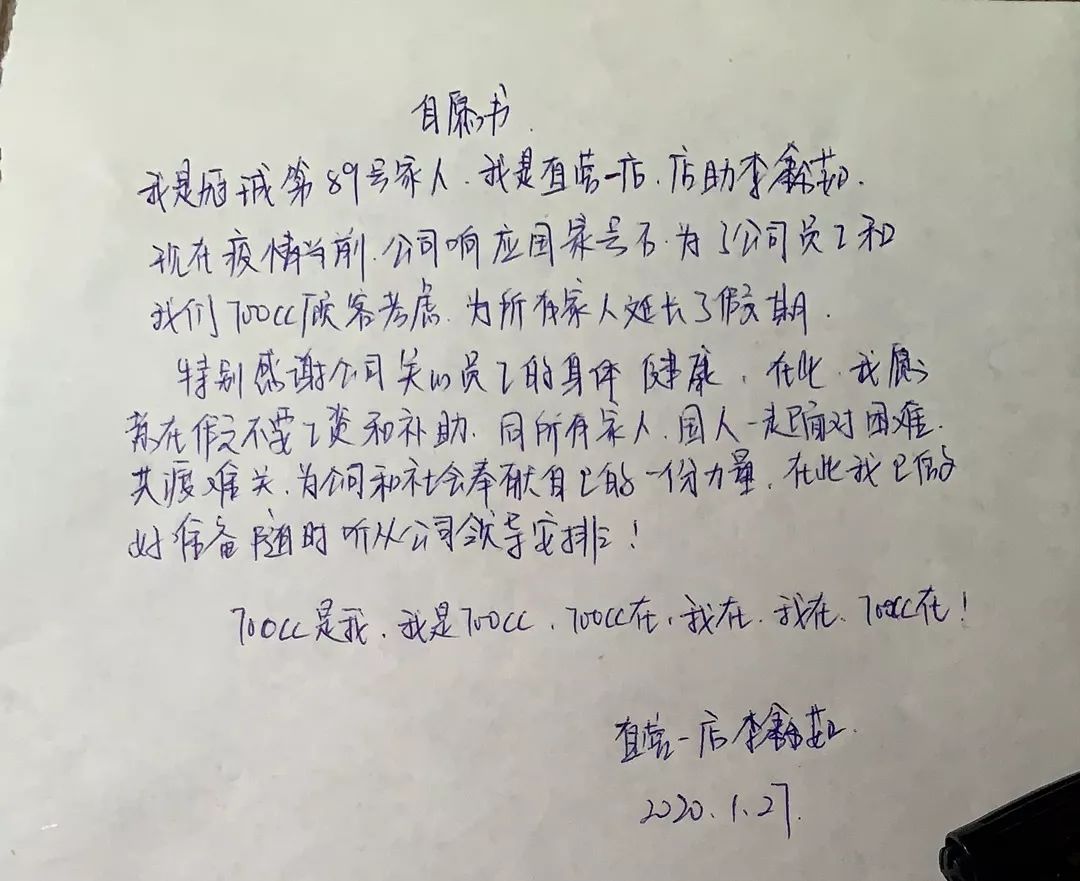 自愿书
我是冠城第89号家人.我是直营一店.店助李鑫茹.
现在疫情当前.公司响应国家号召.为了公司员工和
我们700CC顾客考虑.为所有家人延长了假期.
特别感谢公司关心员工的身体健康.在此.我愿
意在作文不要工资和补助.同所有家人.国人一起面对困难.
共渡难关.为公司和社会奉献自己的一份力量.在此我已做
好准备随时听从公司领导安排!
700CC是我.我是700CC.700CC在.我在.我在.700CC在!
直营一店李鑫茹.
2020.1.27.